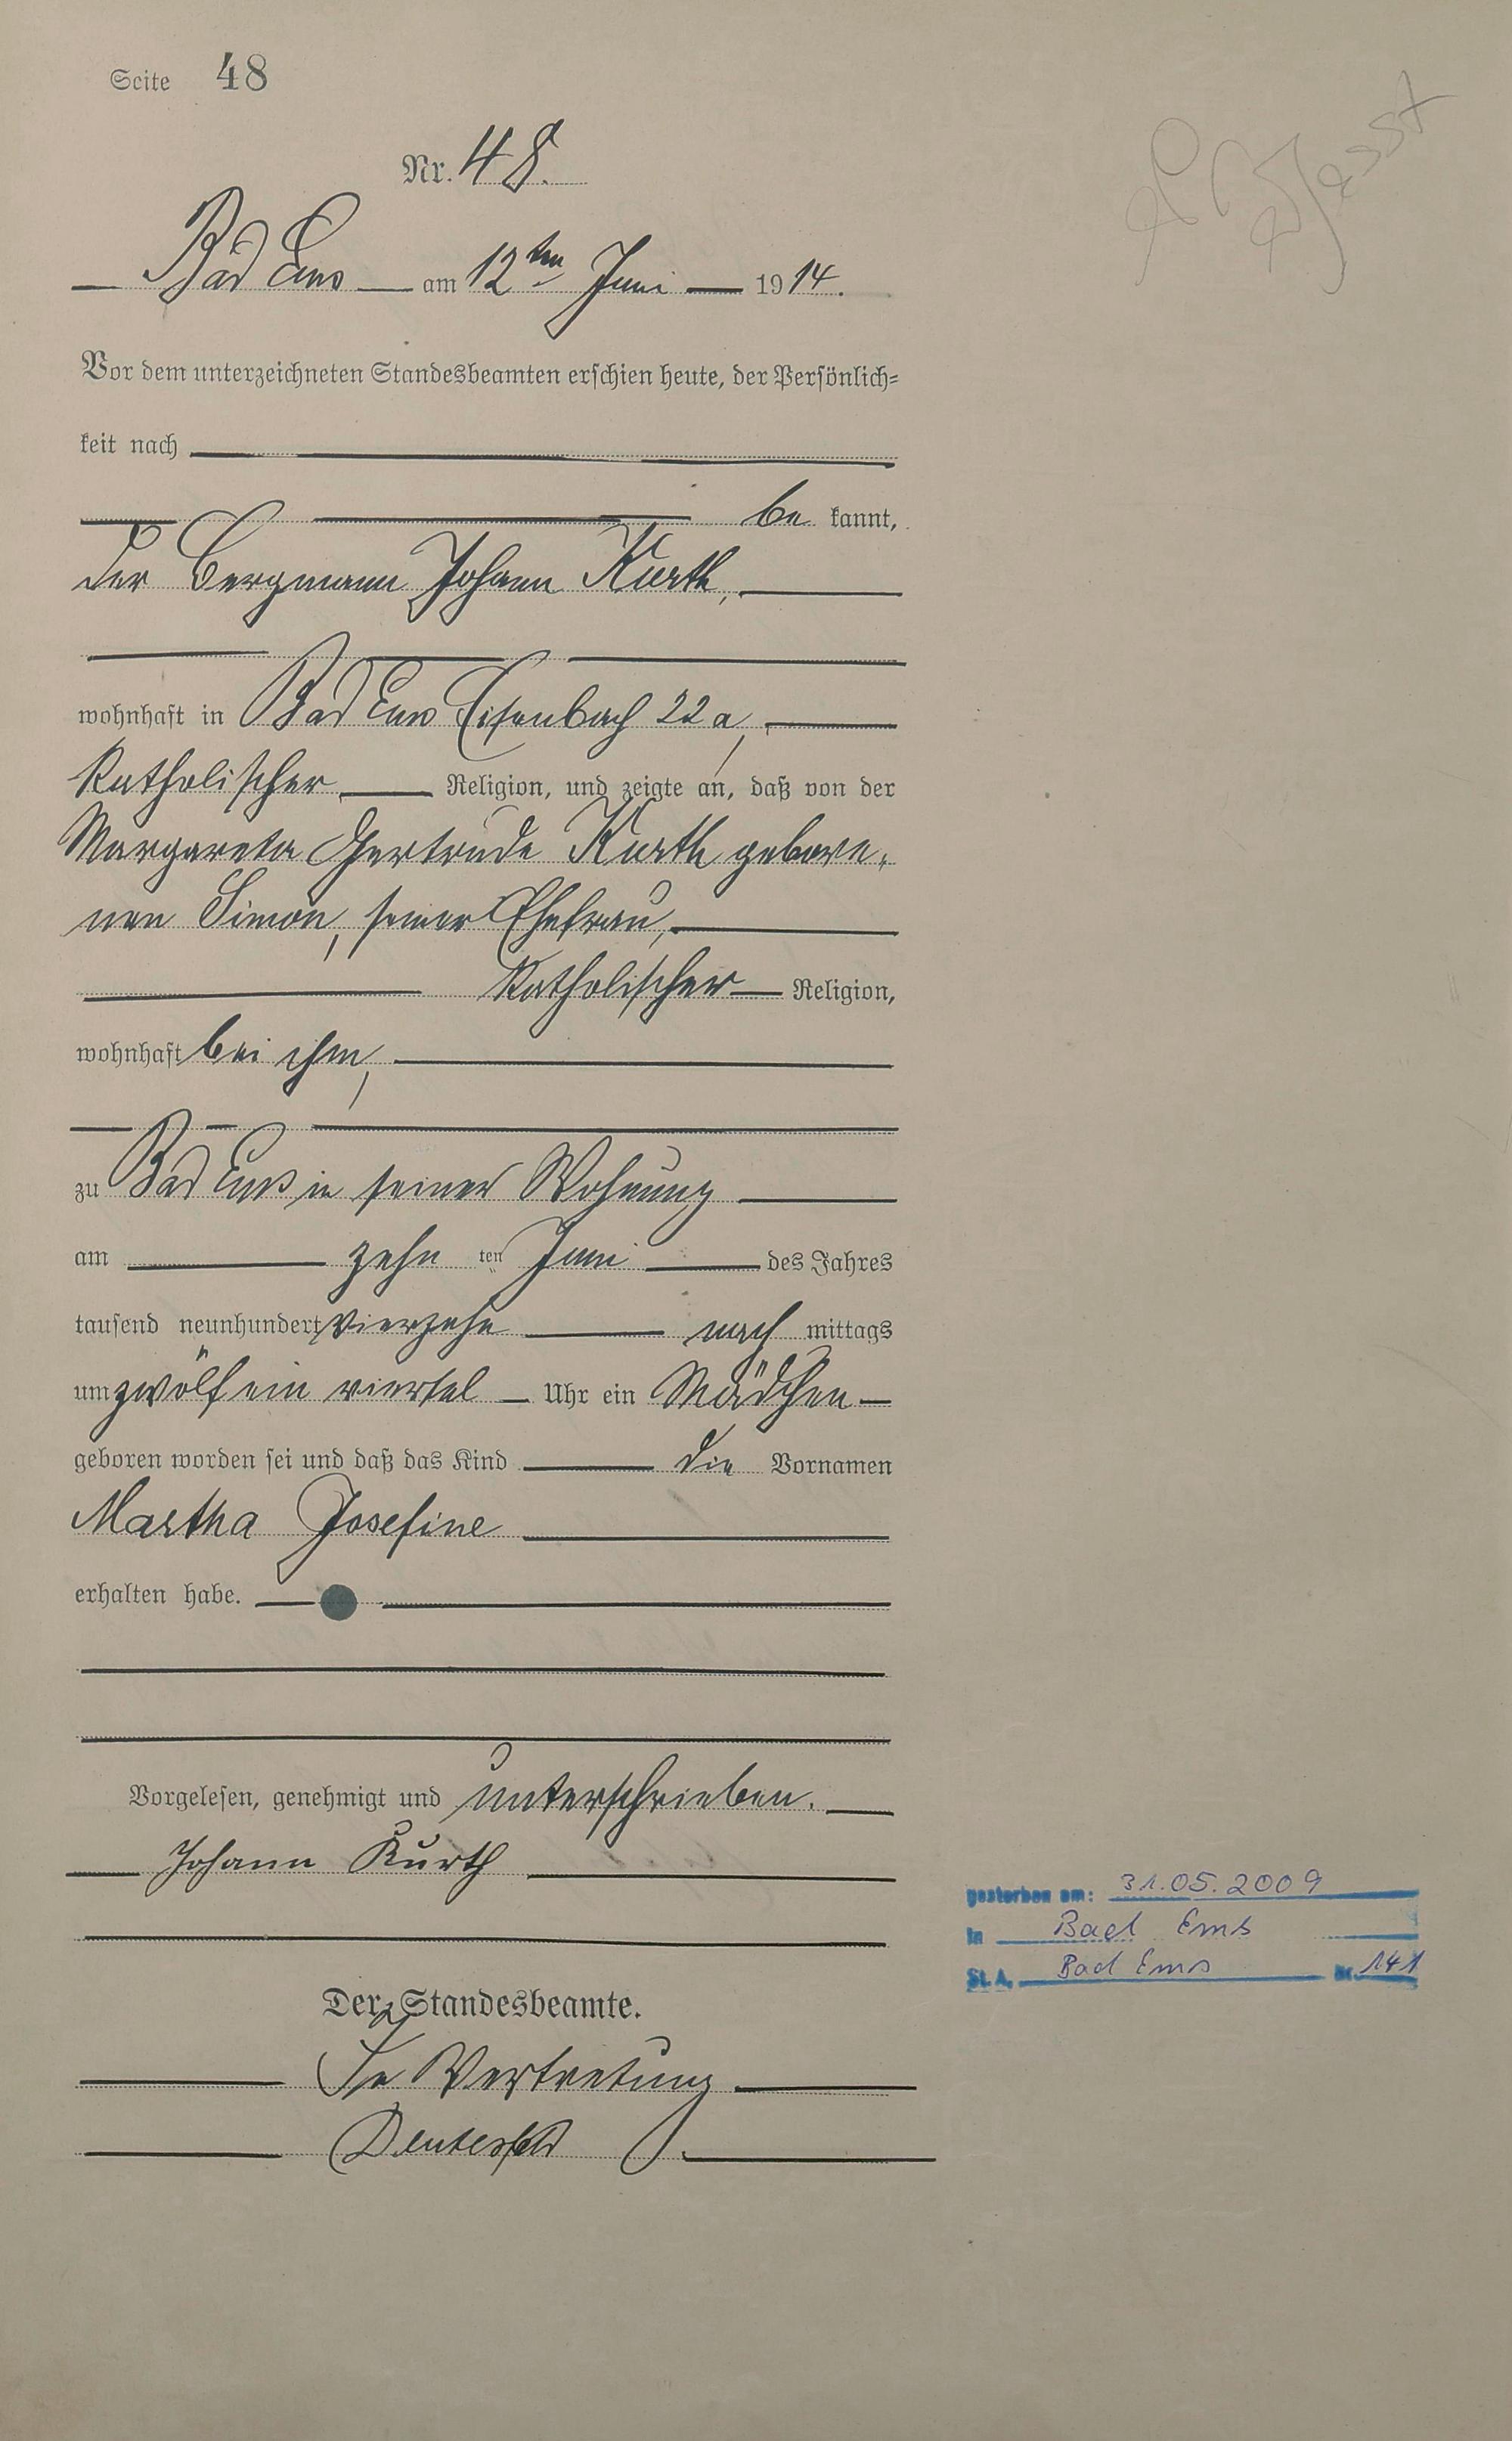 Seite 48
Nr. 48.
Bad Ems am 12ten Juni 1914.
Vor dem unterzeichneten Standesbeamten erschien heute, der Persönlich-
keit nach
be kannt,
der Bergmann Johann Kurth,
wohnhaft in Bad Ems Eisenbach 22a,
katholischer Religion, und zeigte an, daß von der
Margareta Gertrude Kurth gebore-
nen Simon, seiner Ehefrau,
katholischer Religion,
wohnhaft bei ihm,
zu Bad Ems in seiner Wohnung
am zehn ten Juni des Jahres
tausend neunhundert vierzehn nach mittags
um zwölf ein viertel Uhr ein Mädchen
geboren worden sei und daß das Kind die Vornamen
Martha Josefine
erhalten habe.
Vorgelesen, genehmigt und unterschrieben.
Johann Kurth
Der Standesbeamte.
In Vertretung
gestorben am: 31.05.2009
in Bad Ems
St.A. Bad Ems Nr. 141